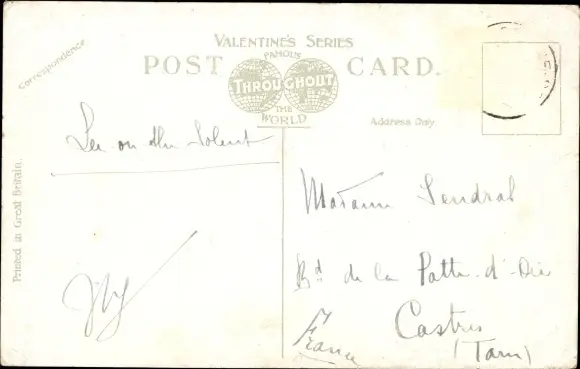 VALENTINE'S SERIES
FAMOUS
POST CARD.
THROUGHOUT
THE
WORLD
Correspondence
Address Only.
Printed in Great Britain.
Lee on the Solent
Madame Sendral
Bd de la Patte d'Oie
Castres
(Tarn)
France